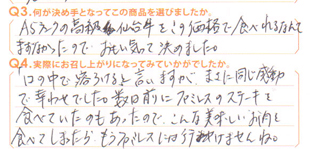 Q3.何が決め手となってこの商品を選びましたか。
A5ランクの高級仙台牛をこの価格で食べれるなんて
まずなかったので、みせい気って決めました。
Q4.実際にお召し上がりになってみていかがでしたか。
「口の中で落ろける」と言いますが、まさに同じ感動
で幸わせでした。数日前にファミレスのステーキを
食べていたのもあったので、こんな美味しいお肉を
食べてしまったらもうファミレスには行けませんね。